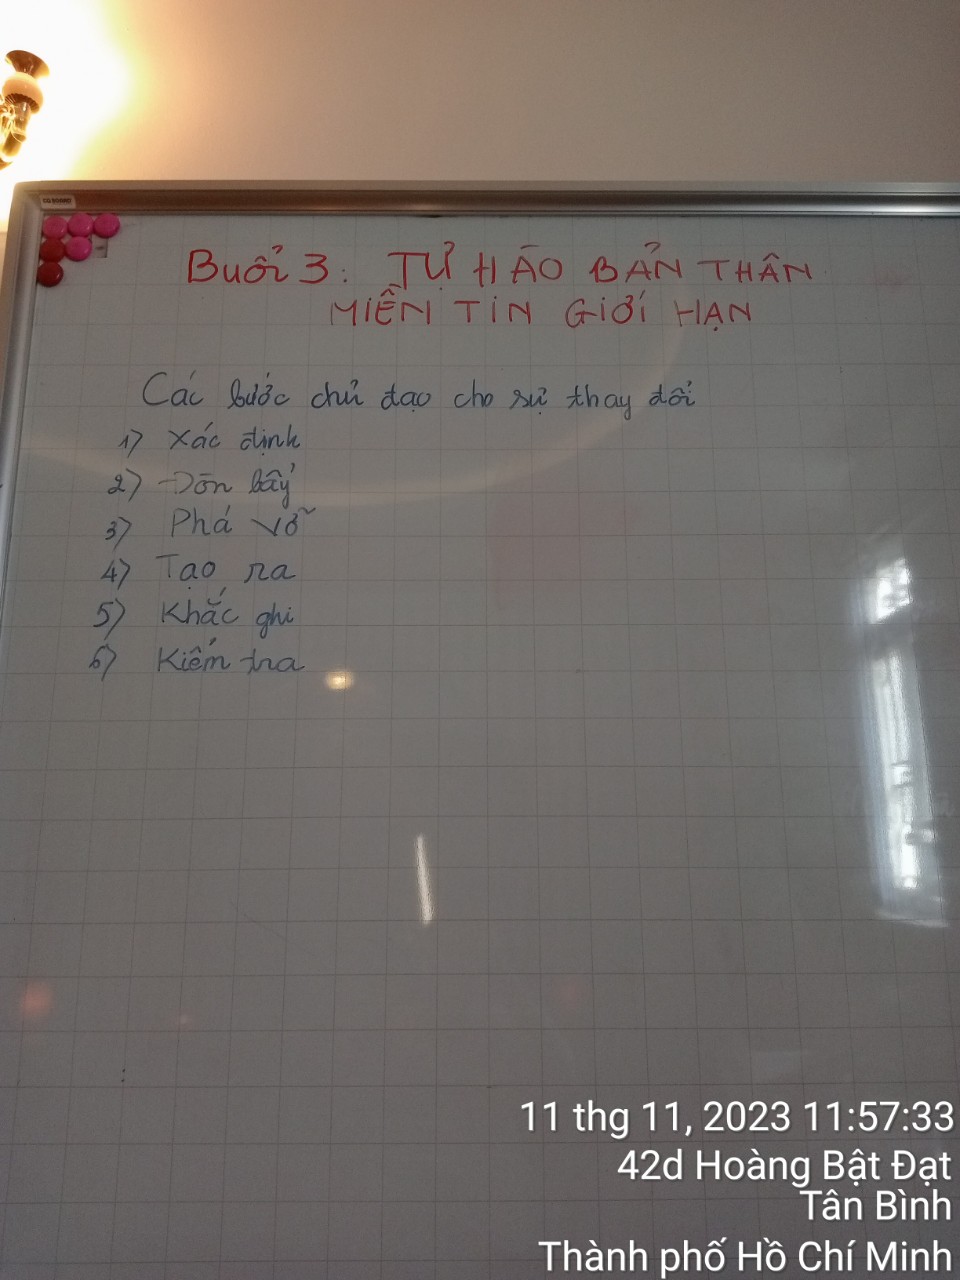 Buổi 3: TỰ HÀO BẢN THÂN
MIỀN TIN GIỚI HẠN
Các bước chủ đạo cho sự thay đổi
1) Xác định
2) Đòn bẩy
3) Phá vỡ
4) Tạo ra
5) Khắc ghi
6) Kiểm tra
11 thg 11, 2023 11:57:33
42d Hoàng Bật Đạt
Tân Bình
Thành phố Hồ Chí Minh